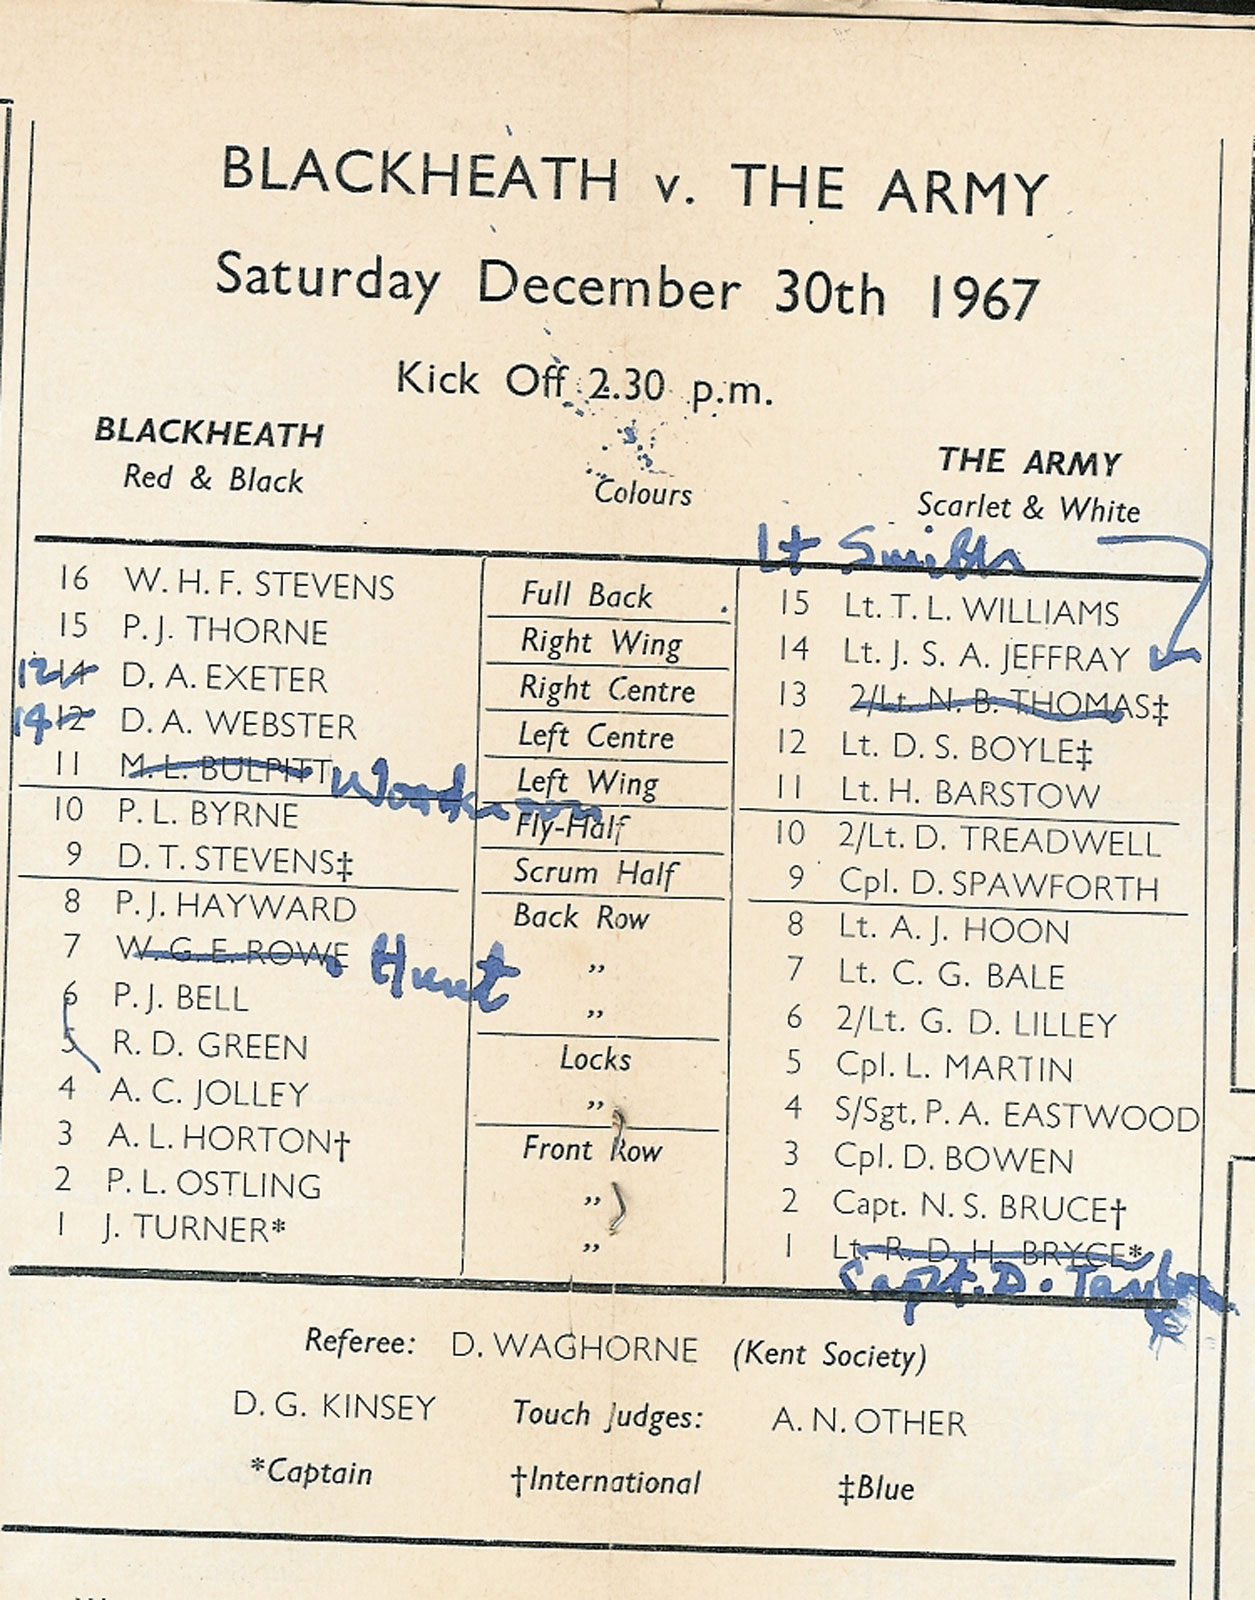 BLACKHEATH v. THE ARMY
Saturday December 30th 1967
Kick Off 2.30 p.m.
BLACKHEATH Colours THE ARMY
Red & Black Scarlet & White
Lt Smith
16 W. H. F. STEVENS Full Back 15 Lt. T. L. WILLIAMS
15 P. J. THORNE Right Wing 14 Lt. J. S. A. JEFFRAY
12 14 D. A. EXETER Right Centre 13 2/Lt. N. B. THOMAS‡
14 12 D. A. WEBSTER Left Centre 12 Lt. D. S. BOYLE‡
11 M. L. BULPITT Left Wing 11 Lt. H. BARSTOW
10 P. L. BYRNE Fly-Half 10 2/Lt. D. TREADWELL
9 D. T. STEVENS‡ Scrum Half 9 Cpl. D. SPAWFORTH
8 P. J. HAYWARD Back Row 8 Lt. A. J. HOON
7 W. G. E. ROWE Hunt ,, 7 Lt. C. G. BALE
6 P. J. BELL ,, 6 2/Lt. G. D. LILLEY
5 R. D. GREEN Locks 5 Cpl. L. MARTIN
4 A. C. JOLLEY ,, 4 S/Sgt. P. A. EASTWOOD
3 A. L. HORTON† Front Row 3 Cpl. D. BOWEN
2 P. L. OSTLING ,, 2 Capt. N. S. BRUCE†
1 J. TURNER* ,, 1 Lt. R. D. H. BRYCE*
Capt. D. Taylor
Referee: D. WAGHORNE (Kent Society)
D. G. KINSEY Touch Judges: A. N. OTHER
*Captain †International ‡Blue